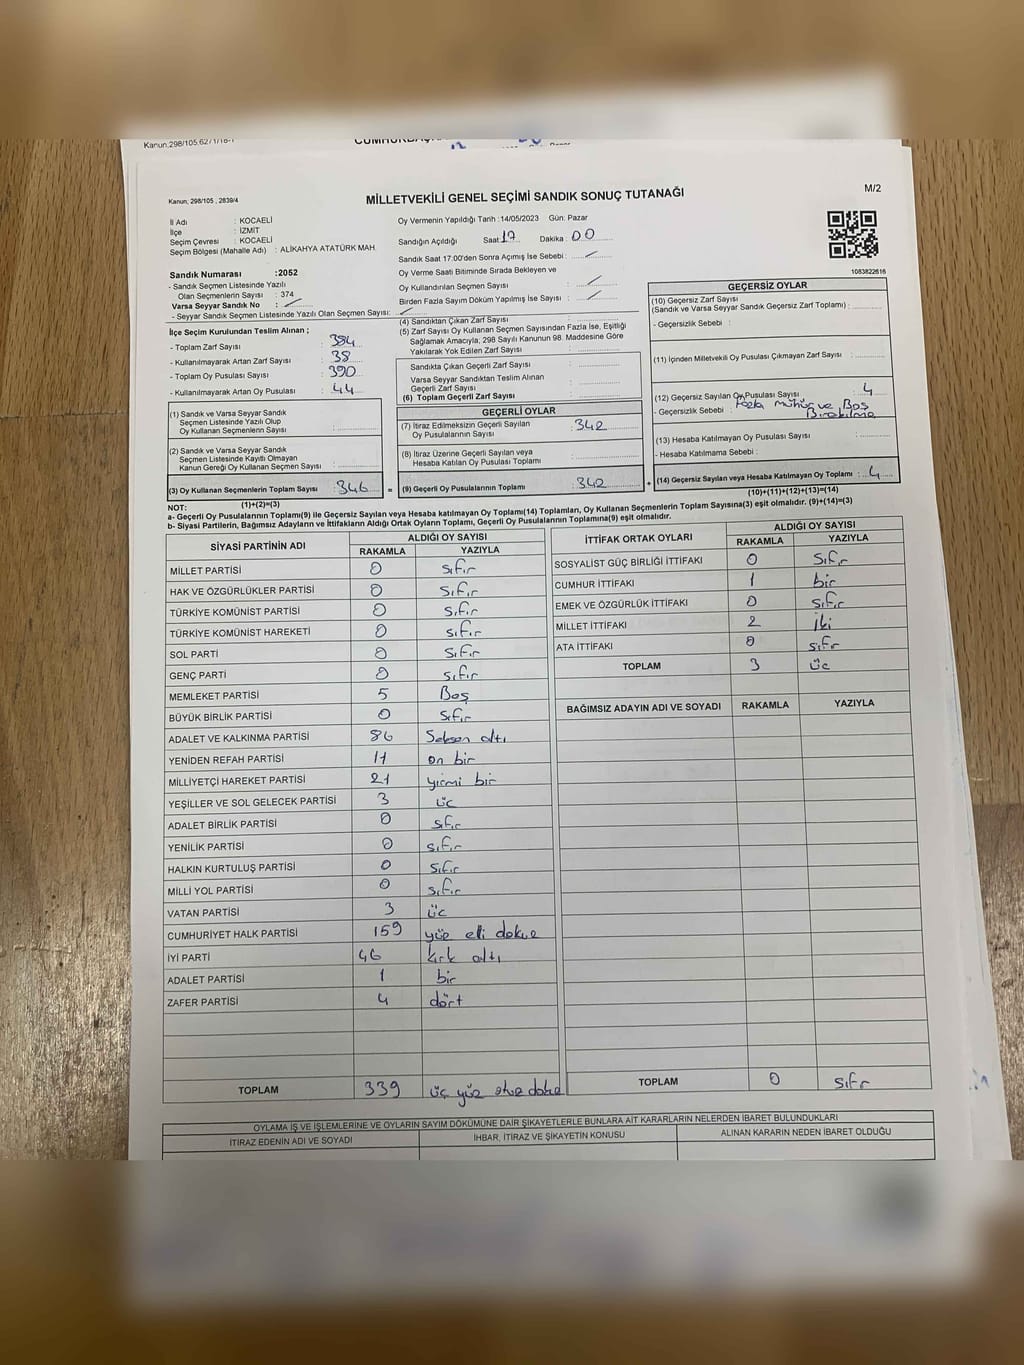 Kanun,298/105,6271/18-1
Kanun, 298/105 , 2839/4
MİLLETVEKİLİ GENEL SEÇİMİ SANDIK SONUÇ TUTANAĞI
M/2
İl Adı : KOCAELİ
İlçe : İZMİT
Seçim Çevresi : KOCAELİ
Seçim Bölgesi (Mahalle Adı) : ALİKAHYA ATATÜRK MAH.
Sandık Numarası :2052
- Sandık Seçmen Listesinde Yazılı
Olan Seçmenlerin Sayısı : 374
Varsa Seyyar Sandık No :
- Seyyar Sandık Seçmen Listesinde Yazılı Olan Seçmen Sayısı:
Oy Vermenin Yapıldığı Tarih :14/05/2023 Gün: Pazar
Sandığın Açıldığı Saat 17 Dakika : 00
Sandık Saat 17:00'den Sonra Açımış İse Sebebi :
Oy Verme Saati Bitiminde Sırada Bekleyen ve
Oy Kullandırılan Seçmen Sayısı :
Birden Fazla Sayım Döküm Yapılmış İse Sayısı :
1083822616
İlçe Seçim Kurulundan Teslim Alınan ;
- Toplam Zarf Sayısı : 384
- Kullanılmayarak Artan Zarf Sayısı : 38
- Toplam Oy Pusulası Sayısı : 390
- Kullanılmayarak Artan Oy Pusulası : 44
(1) Sandık ve Varsa Seyyar Sandık
Seçmen Listesinde Yazılı Olup
Oy Kullanan Seçmenlerin Sayısı :
(2) Sandık ve Varsa Seyyar Sandık
Seçmen Listesinde Kayıtlı Olmayan
Kanun Gereği Oy Kullanan Seçmen Sayısı :
(3) Oy Kullanan Seçmenlerin Toplam Sayısı : 346 =
(1)+(2)=(3)
(4) Sandıktan Çıkan Zarf Sayısı :
(5) Zarf Sayısı Oy Kullanan Seçmen Sayısından Fazla İse, Eşitliği
Sağlamak Amacıyla; 298 Sayılı Kanunun 98. Maddesine Göre
Yakılarak Yok Edilen Zarf Sayısı :
Sandıkta Çıkan Geçerli Zarf Sayısı :
Varsa Seyyar Sandıktan Teslim Alınan
Geçerli Zarf Sayısı :
(6) Toplam Geçerli Zarf Sayısı :
GEÇERLİ OYLAR
(7) İtiraz Edilmeksizin Geçerli Sayılan
Oy Pusulalarının Sayısı : 342
(8) İtiraz Üzerine Geçerli Sayılan veya
Hesaba Katılan Oy Pusulası Toplamı :
(9) Geçerli Oy Pusulalarının Toplamı : 342 +
GEÇERSİZ OYLAR
(10) Geçersiz Zarf Sayısı
(Sandık ve Varsa Seyyar Sandık Geçersiz Zarf Toplamı) :
- Geçersizlik Sebebi :
(11) İçinden Milletvekili Oy Pusulası Çıkmayan Zarf Sayısı :
(12) Geçersiz Sayılan Oy Pusulası Sayısı : 4
- Geçersizlik Sebebi : Fazla mühür ve Boş
Bırakılma
(13) Hesaba Katılmayan Oy Pusulası Sayısı :
- Hesaba Katılmama Sebebi :
(14) Geçersiz Sayılan veya Hesaba Katılmayan Oy Toplamı : 4
(10)+(11)+(12)+(13)=(14)
NOT:
a- Geçerli Oy Pusulalarının Toplamı(9) ile Geçersiz Sayılan veya Hesaba Katılmayan Oy Toplamı(14) Toplamları, Oy Kullanan Seçmenlerin Toplam Sayısına(3) eşit olmalıdır. (9)+(14)=(3)
b- Siyasi Partilerin, Bağımsız Adayların ve İttifakların Aldığı Ortak Oyların Toplamı, Geçerli Oy Pusulalarının Toplamına(9) eşit olmalıdır.
SİYASİ PARTİNİN ADI ALDIĞI OY SAYISI
RAKAMLA YAZIYLA
MİLLET PARTİSİ 0 sıfır
HAK VE ÖZGÜRLÜKLER PARTİSİ 0 sıfır
TÜRKİYE KOMÜNİST PARTİSİ 0 sıfır
TÜRKİYE KOMÜNİST HAREKETİ 0 sıfır
SOL PARTİ 0 sıfır
GENÇ PARTİ 0 sıfır
MEMLEKET PARTİSİ 5 Beş
BÜYÜK BİRLİK PARTİSİ 0 sıfır
ADALET VE KALKINMA PARTİSİ 86 Seksen altı
YENİDEN REFAH PARTİSİ 11 on bir
MİLLİYETÇİ HAREKET PARTİSİ 21 yirmi bir
YEŞİLLER VE SOL GELECEK PARTİSİ 3 üç
ADALET BİRLİK PARTİSİ 0 sıfır
YENİLİK PARTİSİ 0 sıfır
HALKIN KURTULUŞ PARTİSİ 0 sıfır
MİLLİ YOL PARTİSİ 0 sıfır
VATAN PARTİSİ 3 üç
CUMHURİYET HALK PARTİSİ 159 yüz elli dokuz
İYİ PARTİ 46 kırk altı
ADALET PARTİSİ 1 bir
ZAFER PARTİSİ 4 dört
TOPLAM 339 üç yüz otuz dokuz
İTTİFAK ORTAK OYLARI ALDIĞI OY SAYISI
RAKAMLA YAZIYLA
SOSYALİST GÜÇ BİRLİĞİ İTTİFAKI 0 sıfır
CUMHUR İTTİFAKI 1 bir
EMEK VE ÖZGÜRLÜK İTTİFAKI 0 sıfır
MİLLET İTTİFAKI 2 iki
ATA İTTİFAKI 0 sıfır
TOPLAM 3 üç
BAĞIMSIZ ADAYIN ADI VE SOYADI RAKAMLA YAZIYLA
TOPLAM 0 sıfır
OYLAMA İŞ VE İŞLEMLERİNE VE OYLARIN SAYIM DÖKÜMÜNE DAİR ŞİKAYETLERLE BUNLARA AİT KARARLARIN NELERDEN İBARET BULUNDUKLARI
İTİRAZ EDENİN ADI VE SOYADI İHBAR, İTİRAZ VE ŞİKAYETİN KONUSU ALINAN KARARIN NEDEN İBARET OLDUĞU